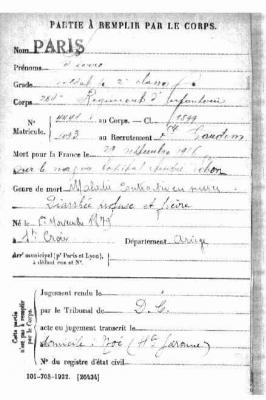 PARTIE À REMPLIR PAR LE CORPS.
Nom PARIS
Prénoms Pierre
Grade soldat de 2e classe
Corps 288e Régiment d'Infanterie
N° 4441 au Corps. — Cl. 1899
Matricule. 1093 au Recrutement
Mort pour la France le 29 septembre 1916
sur le navire hôpital
Genre de mort Maladie contractée en
Diarrhée et fièvre
Né le 6 Novembre 1879
à Ste Croix Département Ariège
Arrt municipal (pr Paris et Lyon),
à défaut rue et N°.
Cette partie
n'est pas à remplir
par le Corps.
Jugement rendu le
par le Tribunal de D.G.
acte ou jugement transcrit le
domicile : Noé (Hte Garonne)
N° du registre d'état civil
101-708-1922. [26434]